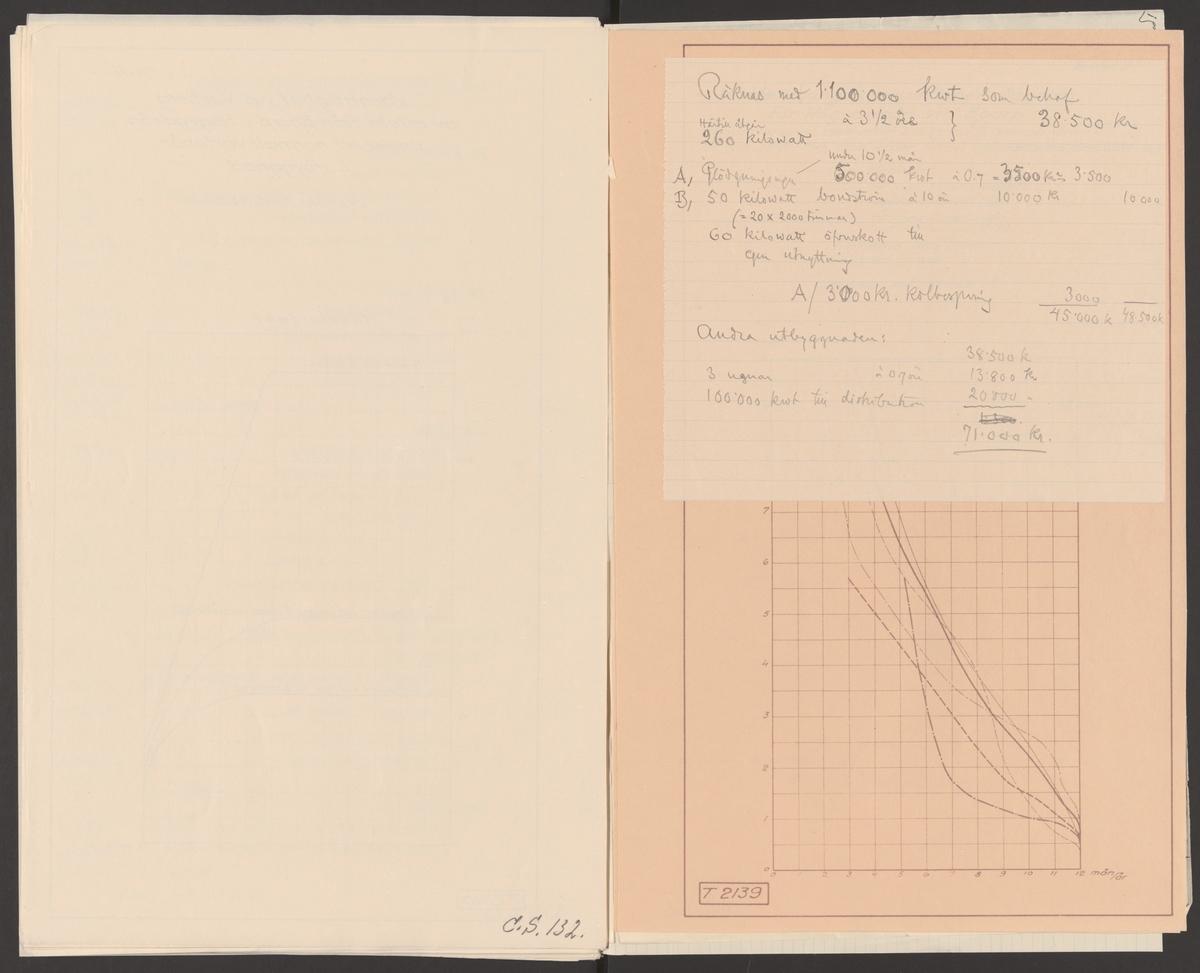 5
Räknas med 1·100 000 kwt som behof
à 3 1/2 öre } 38·500 kr
260 kilowatt
under 10 1/2 mån
A, 500 000 kwt à 0.7 = 3500 kr 3·500
B, 50 kilowatt à 10 ör 10·000 kr 10 000
(= 20 x 2000 timmar)
60 kilowatt till
egen utnyttning
A/ 3·000 kr. kolbesparing 3000
45·000 k 48·500 k
Andra utbyggnaden:
38·500 k
3 ugnar à 0.7 ör 13·800 kr
100·000 kwt till distribution 20 000 -
71·000 kr.
7
6
5
4
3
2
1
0
0 1 2 3 4 5 6 7 8 9 10 11 12 mån/år
T 2139
C.S. 132.